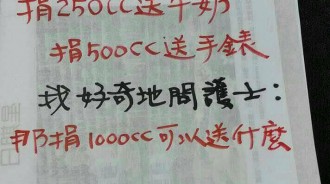 捐250CC送牛奶
捐500CC送手錶
我好奇地問護士：
那捐1000CC可以送什麼